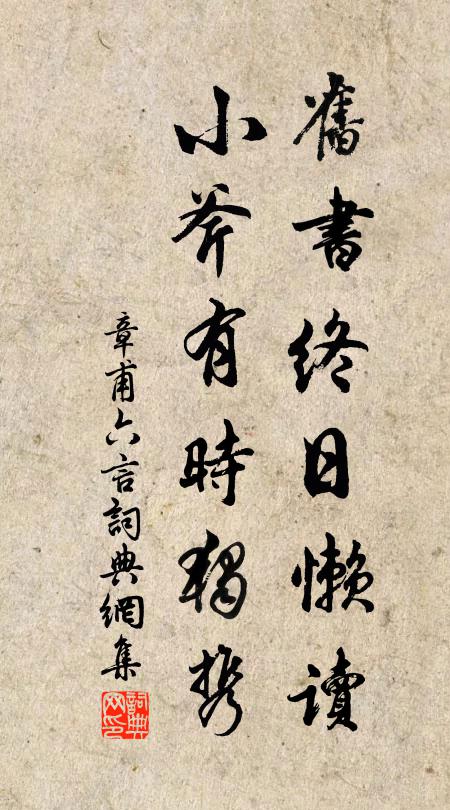 舊書終日懶讀
小斧有時獨携
章甫六言詞典網集
詞典网印